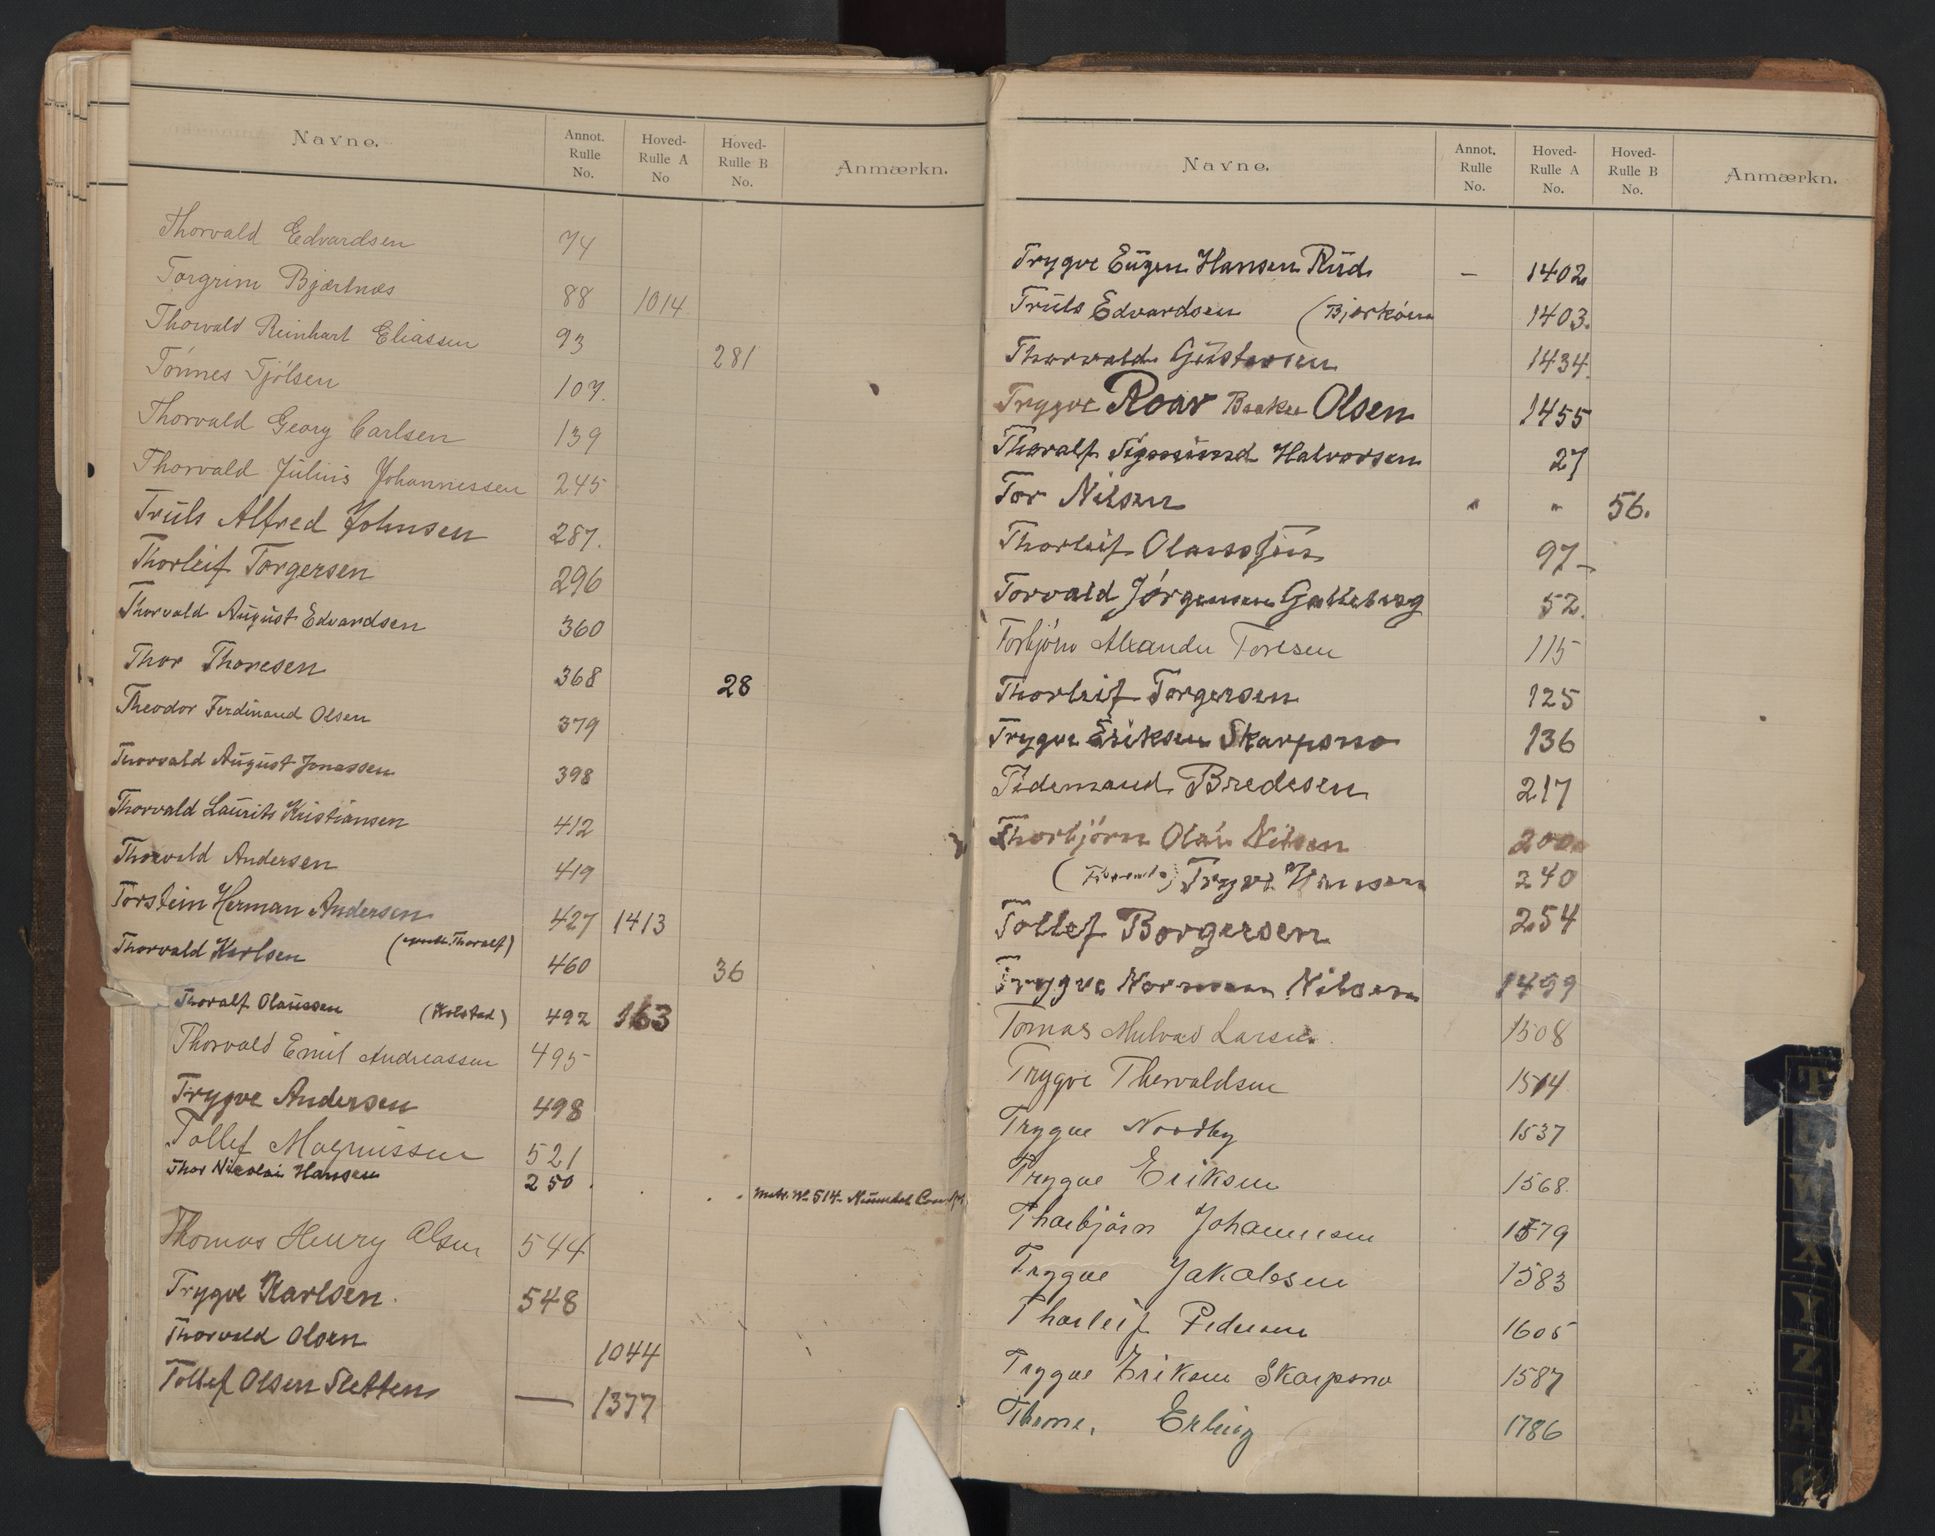 Navne. Annot. Rulle No. Hoved- Rulle A No Hoved- Rulle B No. Anmærkn.
Thorvald Edvardsen 74
Torgrim Bjærtnæs 88 1014
Thorvald Reinhart Eliassen 93 281
Tönnes Tjölsen 107.
Thorvald Georg Carlsen 139
Thorvald Julius Johannessen 245
Truls Alfred Johnsen 287.
Thorleif Torgersen 296
Thorvald August Edvardsen 360
Thor Thoresen 368 28
Theodor Ferdinand Olsen 379
Thorvald August Jonassen 398
Thorvald Laurits Kristiansen 412
Thorvald Andersen 419
Torstein Herman Andersen 427 1413
Thorvald Karlsen ( Thoralf) 460 36
Thoralf Olaussen (Kolstad) 492 163
Thorvald Emil Andreassen 495
Trygve Andersen 498
Tollef Magnussen 521
Thor Nicolai Hansen 250 . . . Mntr. No 514
Thomas Henry Olsen 544
Trygve Karlsen. 548
Thorvald Olsen 1044
Tollef Olsen Sletten — 1377
Navne. Annot. Rulle No. Hoved- Rulle A No. Hoved- Rulle B No. Anmærkn.
Trygve Eugen Hansen Rud — 1402
Truls Edvardsen (Bjerköen 1403.
Thorvald Gustavsen 1434.
Trygve Roar Olsen 1455
Thoralf Sigmund Halvorsen 27
Tor Nilsen " " 56.
Thorleif Olaussen 97 —
Torvald Jörgensen Galteberg 52.
Torbjörn Alexander Toresen 115
Thorleif Torgersen 125
Trygve Eriksen Skarpsno 136
Tidemand Bredesen 217
Thorbjörn Olai Nilsen 200
Trygve Hansen 240
Tollef Borgersen 254
Trygve Norman Nilsen 1499
Tomas Larsen. 1508
Trygve Thorvaldsen 1514
Trygve Nordby 1537
Trygve Eriksen 1568.
Thorbjörn Johannesen 1579
Trygve Jakobsen 1583
Thorleif Pedersen 1605
Trygve Eriksen Skarpsno 1587
Throne, Erling 1786
T